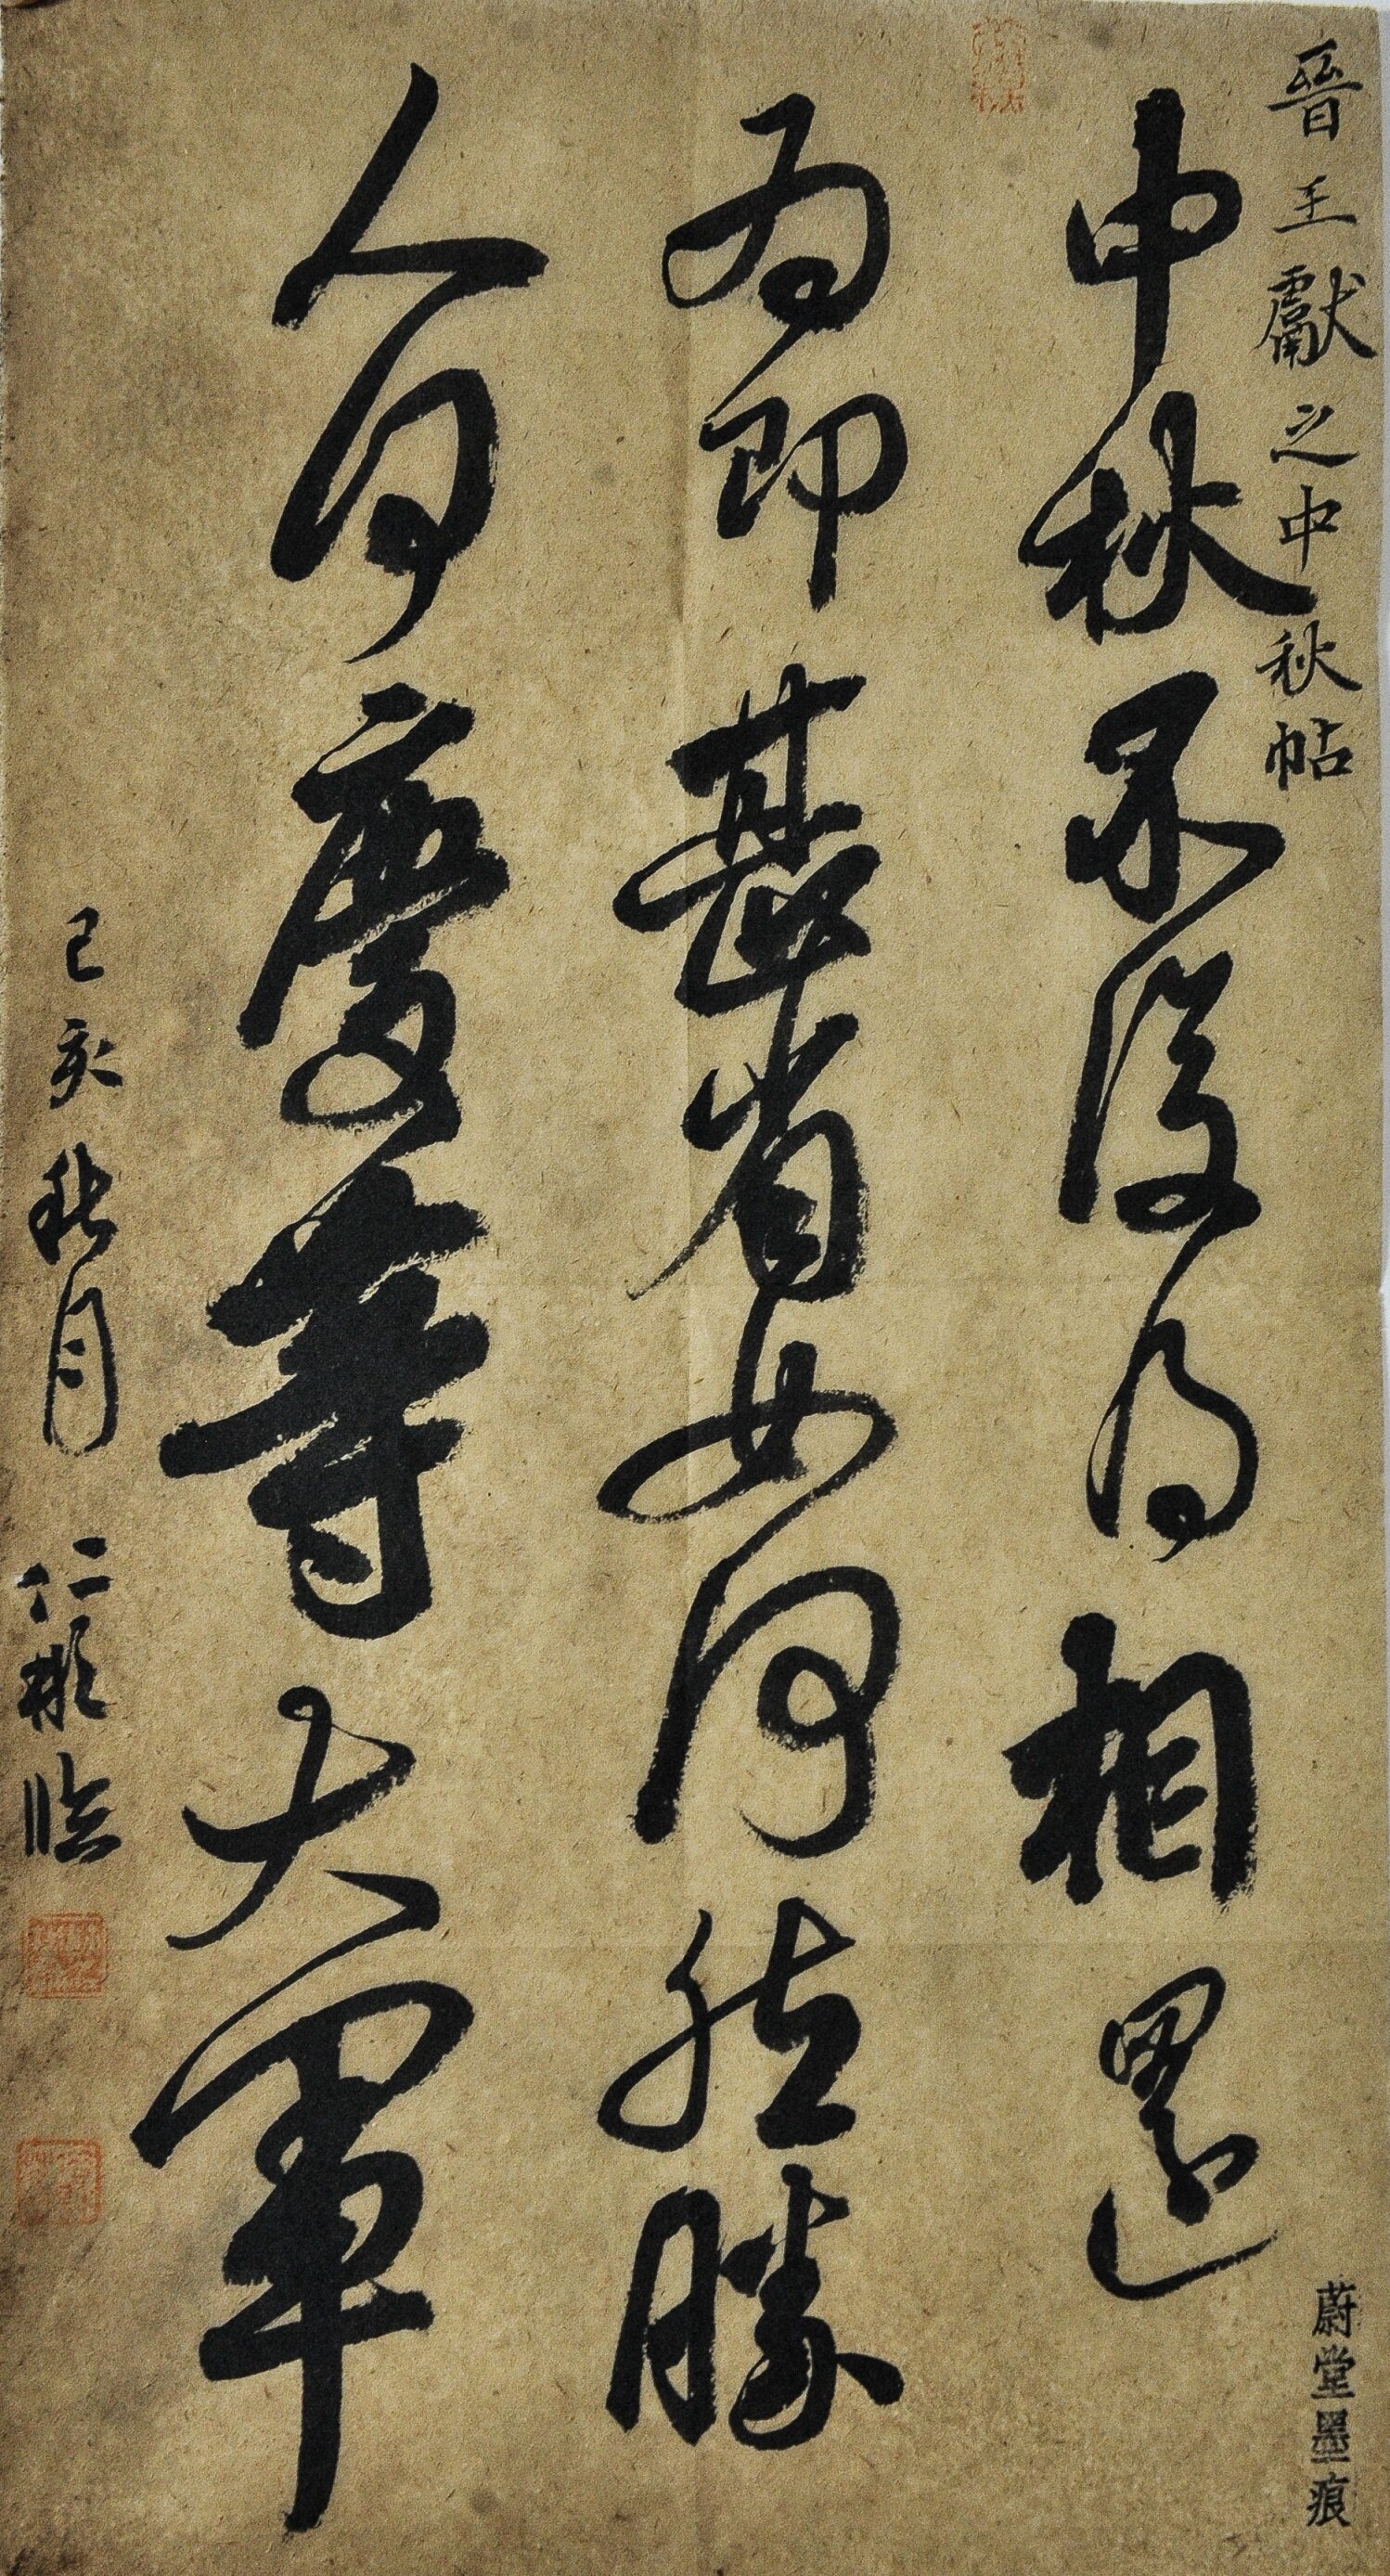 晉王獻之中秋帖
中秋不復得相還
為即甚省如何然勝
人何慶等大軍
己亥秋月 仁彬臨
蔚堂墨痕